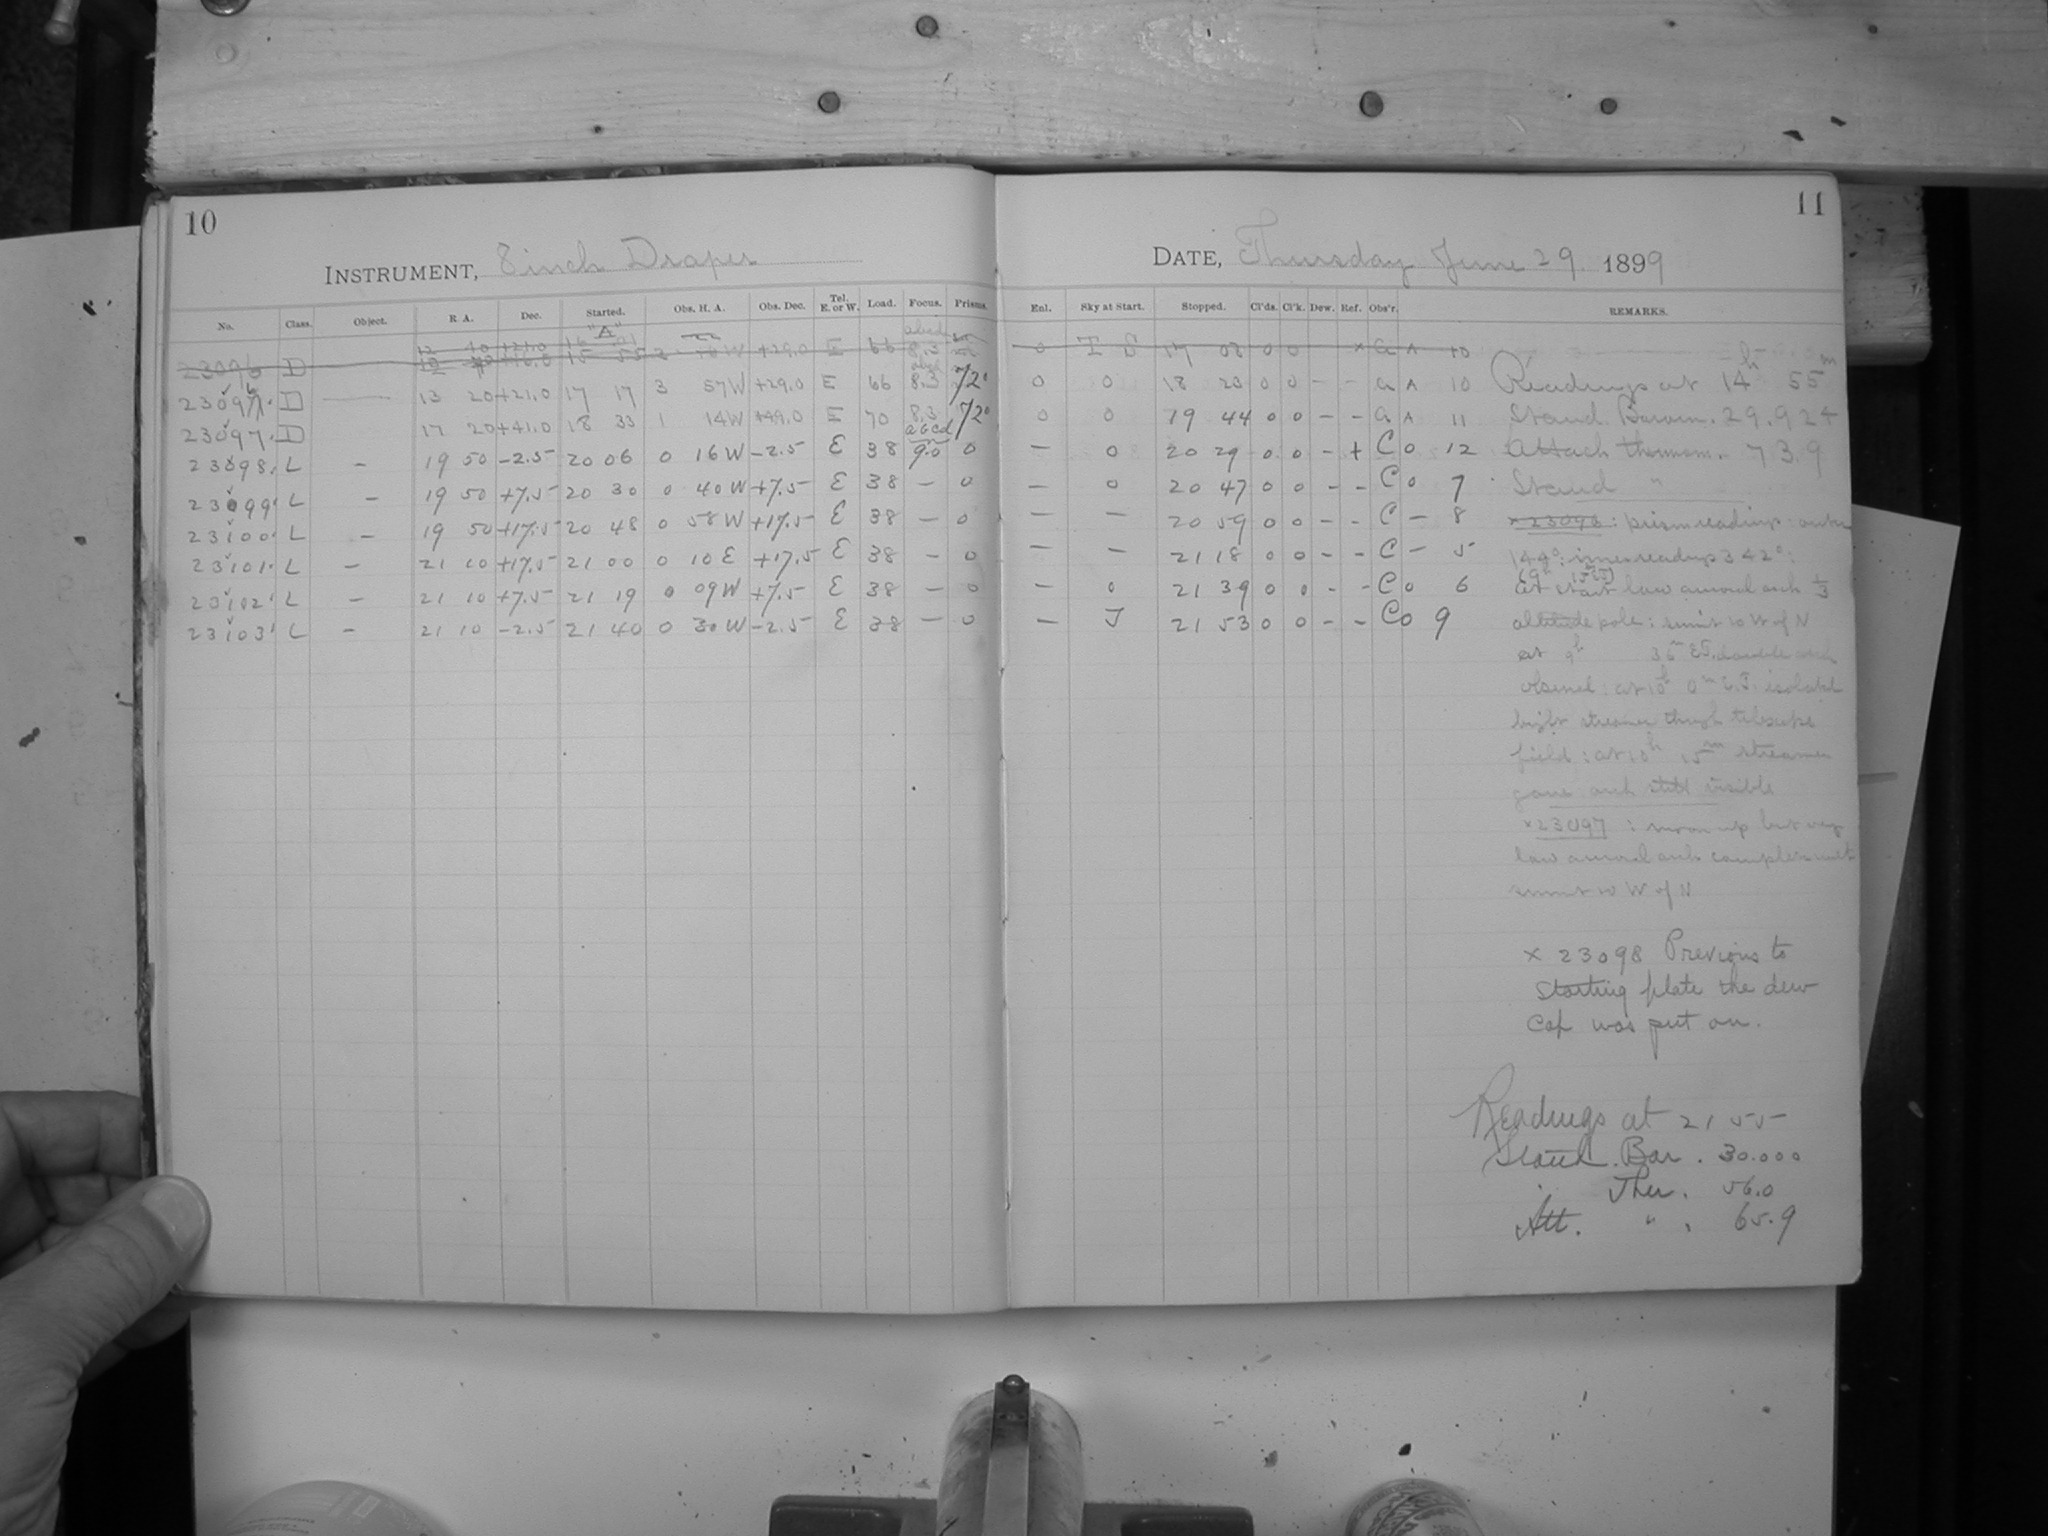 10
INSTRUMENT, 8 inch Draper
No. Class. Object. R. A. Dec. Started. Obs. H. A. Obs. Dec. Tel. E. or W. Load. Focus. Prisms.
"A"
23096 D +29.0 E 66 8.3
23096 D 13 20 +21.0 17 17 3 57 W +29.0 E 66 8.3 72°
23097 D 17 20 +41.0 18 33 1 14 W +49.0 E 70 8.3 72°
23098 L – 19 50 –2.5 20 06 0 16 W –2.5 E 38 9.0 0
23099 L – 19 50 +7.5 20 30 0 40 W +7.5 E 38 – 0
23100 L – 19 50 +17.5 20 48 0 58 W +17.5 E 38 – 0
23101 L – 21 10 +17.5 21 00 0 10 E +17.5 E 38 – 0
23102 L – 21 10 +7.5 21 19 0 09 W +7.5 E 38 – 0
23103 L – 21 10 –2.5 21 40 0 30 W –2.5 E 38 – 0
11
DATE, Thursday June 29. 1899
Enl. Sky at Start. Stopped. Cl'ds. Cl'k. Dew. Ref. Obs'r. REMARKS.
0 17 02 0 0 × A 10
0 0 18 20 0 0 – – A 10
0 0 19 44 0 0 – – A 11
– 0 20 29 0 0 – + C 0 12
– 0 20 47 0 0 – – C 0 7
– – 20 59 0 0 – – C – 8
– – 21 18 0 0 – – C – 5
– 0 21 39 0 0 – – C 0 6
– J 21 53 0 0 – – C 0 9
Readings at 14h 55m
Stand Barom. 29.924
Attach thermom. 73.9
Stand "
× 23096 : prism readings : outer
144° : inner readings 342° :
At start low auroral arch 1/3
altitude pole : summit 10 W of N
at 9h 36m E.T. double arch
observed : at 10h 0m E.T. isolated
bright streamer through telescope
field : at 10h 15m streamer
gone arch still visible
× 23097 : moon up but very
low auroral arch complete with
summit 10 W of N
× 23098 Previous to
starting plate the dew
cap was put on.
Readings at 21 55
Stand. Bar. 30.000
" Ther. 56.0
Att. " . 65.9